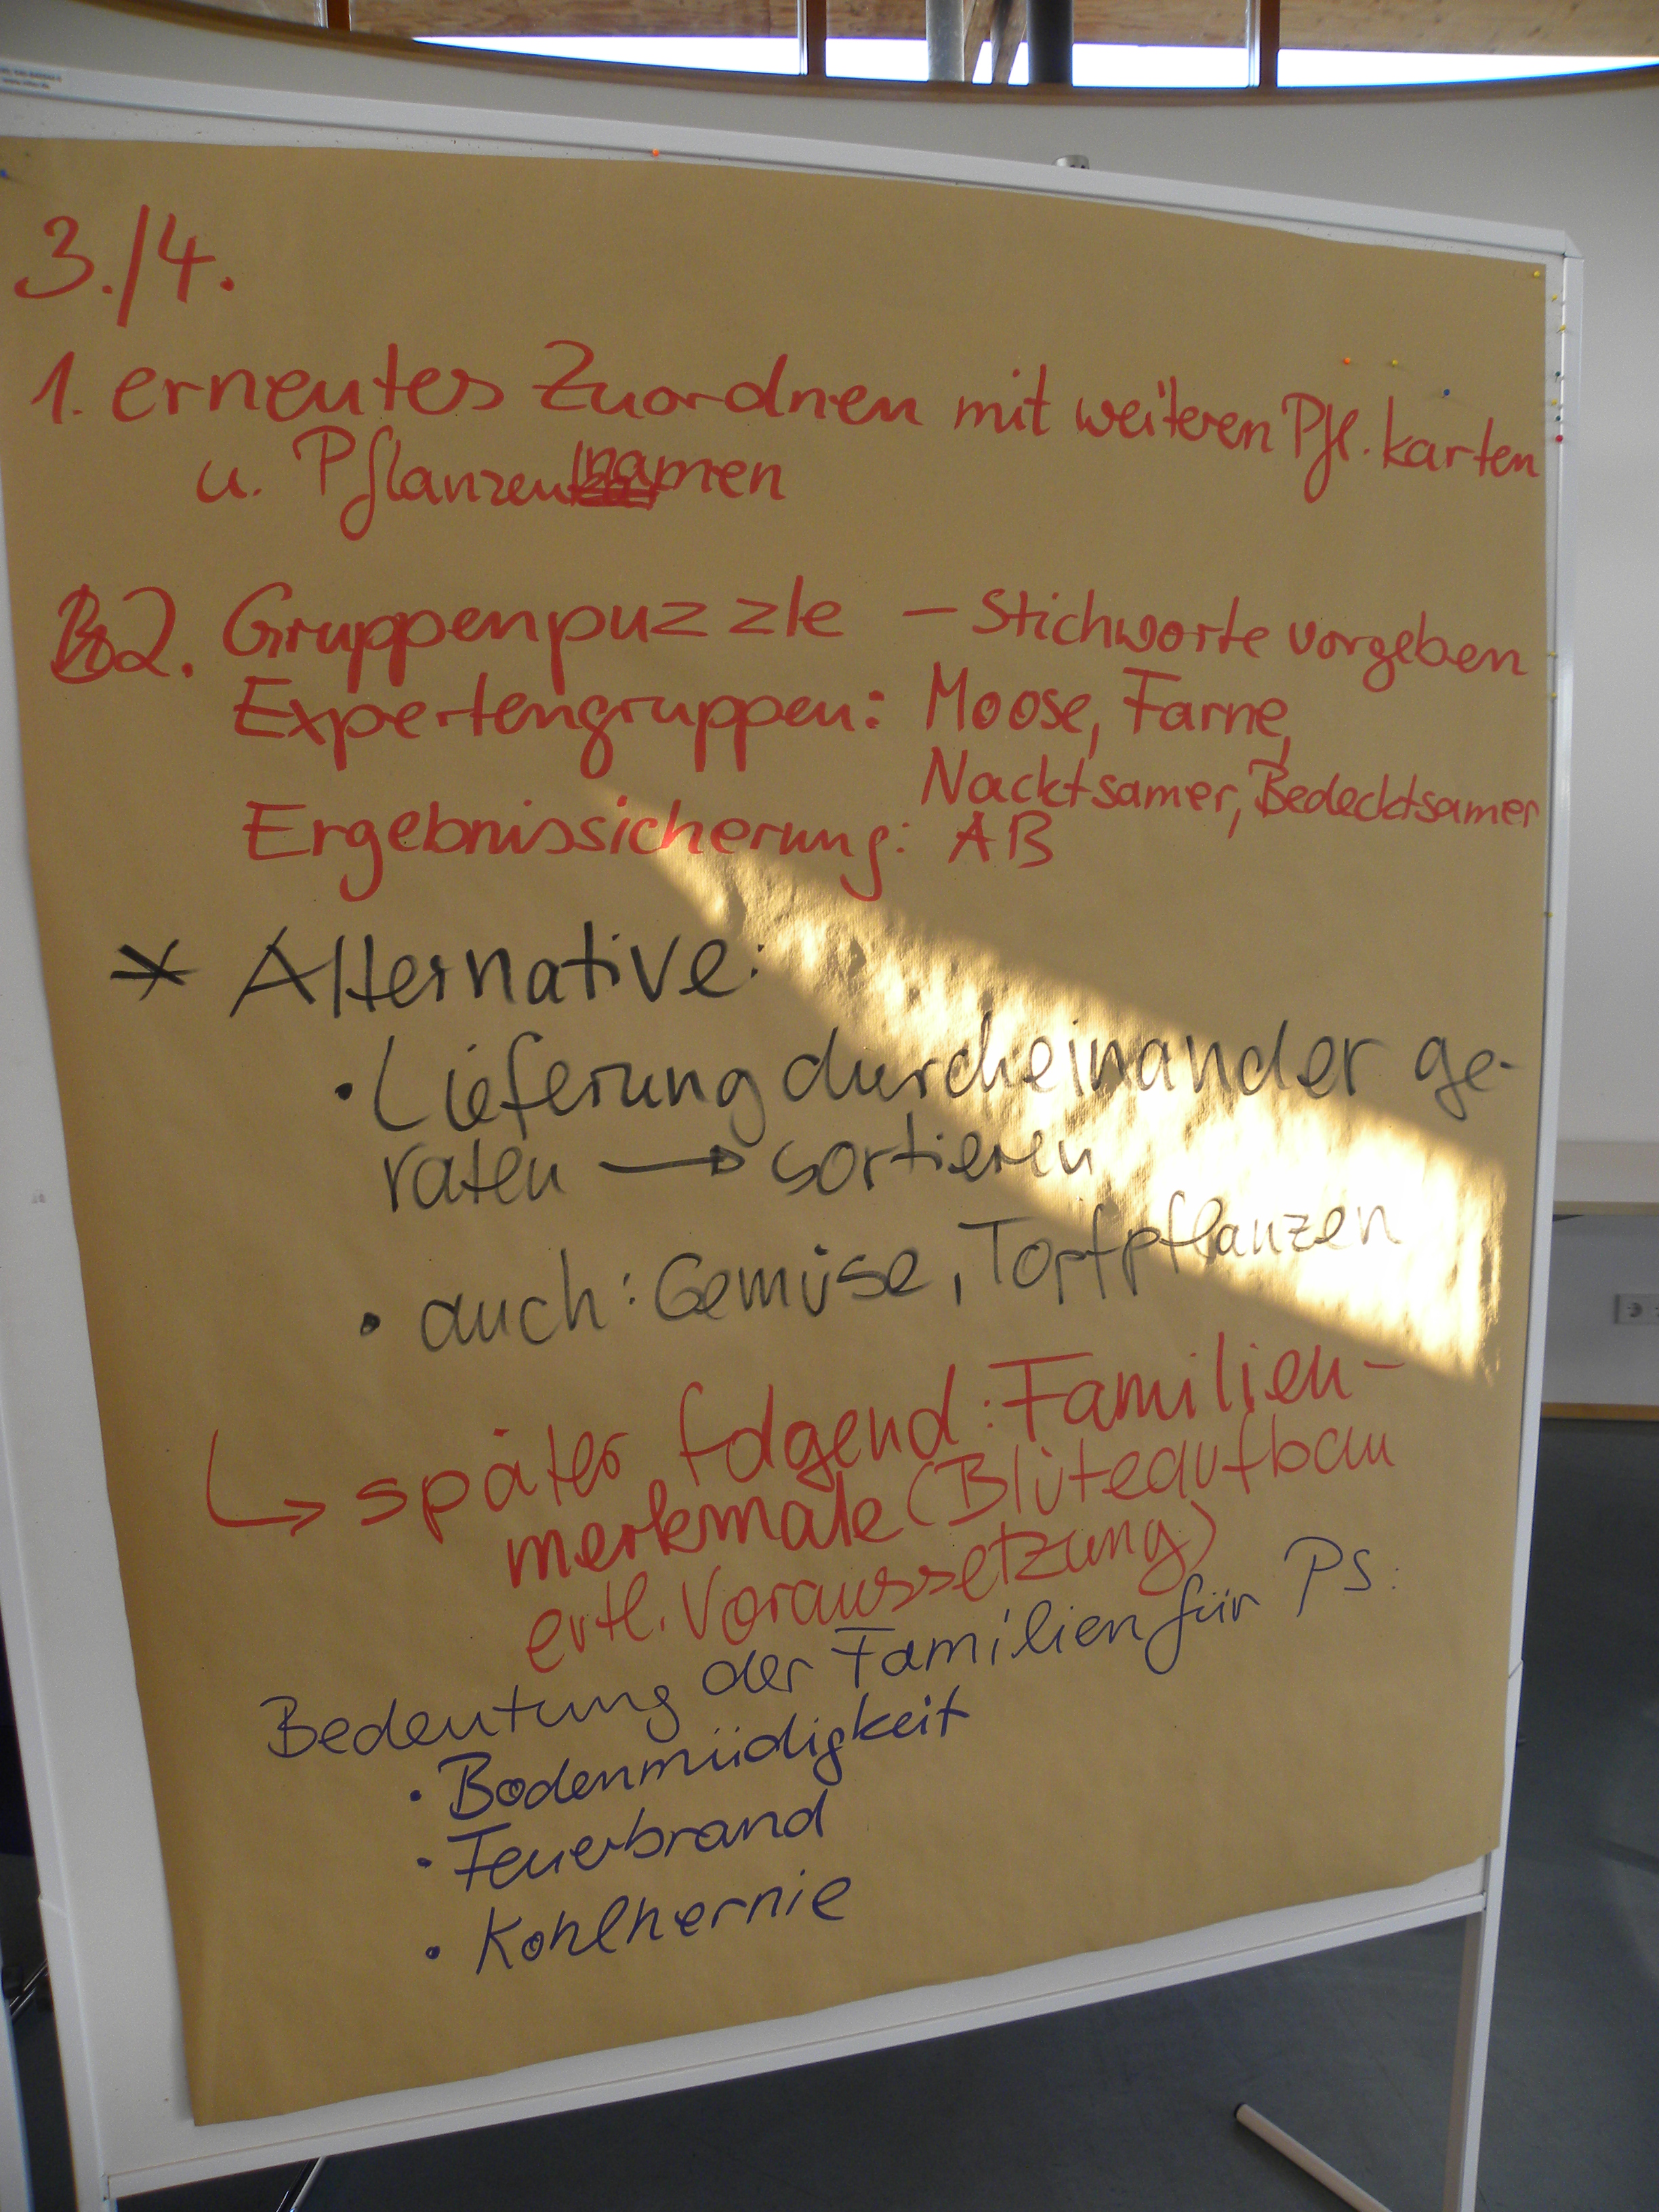 3./4.
1. erneutes Zuordnen mit weiteren Pfl. karten
u. Pflanzennamen
2. Gruppenpuzzle – Stichworte vorgeben
Expertengruppen: Moose, Farne,
Nacktsamer, Bedecktsamer
Ergebnissicherung: AB
* Alternative:
• Lieferung durcheinander ge-
raten → sortieren
• auch: Gemüse, Topfpflanzen
↳ später folgend: Familien-
merkmale (Blüteaufbau
evtl. Voraussetzung)
Bedeutung der Familien für PS:
• Bodenmüdigkeit
• Feuerbrand
• Kohlhernie